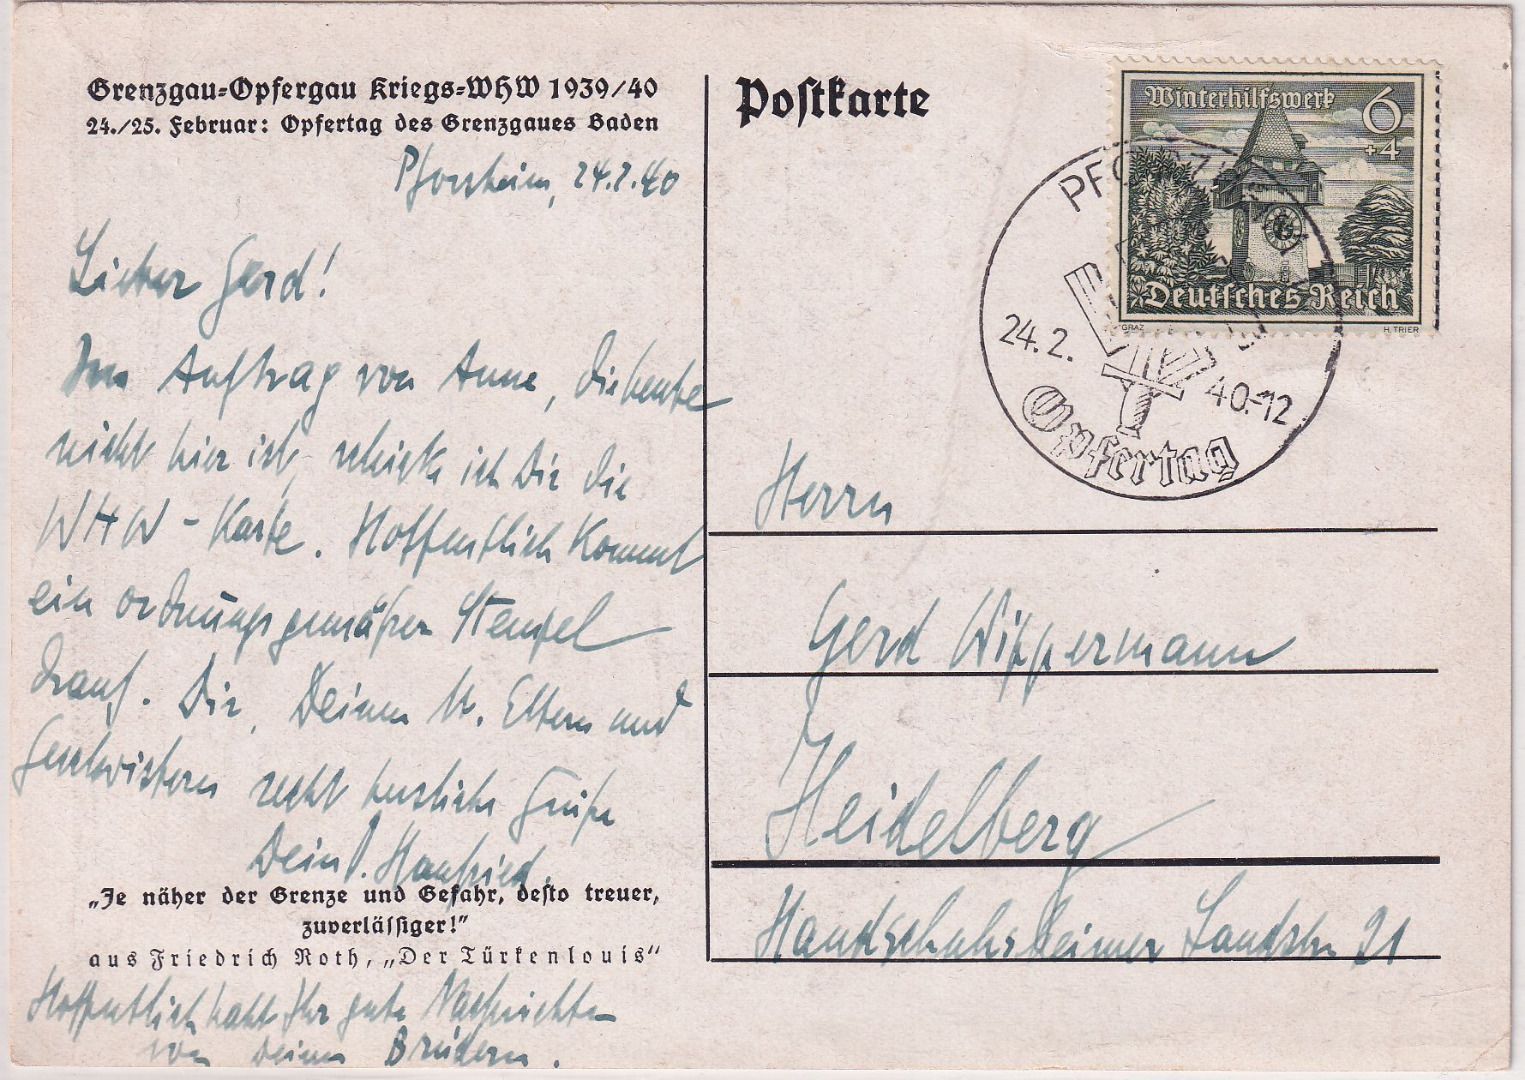 Grenzgau-Opfergau Kriegs-WHW 1939/40
24./25. Februar: Opfertag des Grenzgaues Baden
Pforzheim, 24.2.40
Lieber Gerd!
Im Auftrag von Anne, die heute
nicht hier ist, schicke ich Dir die
WHW-Karte. Hoffentlich kommt
ein ordnungsgemäßer Stempel
drauf. Dir, Deinen lb. Eltern und
Geschwistern recht herzliche Grüße
Dein Hanfried.
„Je näher der Grenze und Gefahr, desto treuer,
zuverlässiger!"
aus Friedrich Roth, „Der Türkenlouis"
Hoffentlich habt Ihr gute Nachrichten
von Deinen Brüdern.
Postkarte
Winterhilfswerk 6
+4
Deutsches Reich
GRAZ H. TRIER
PFORZHEIM
24.2. 40.-12
Opfertag
Herrn
Gerd Wippermann
Heidelberg
Handschuhsheimer Landstr. 21